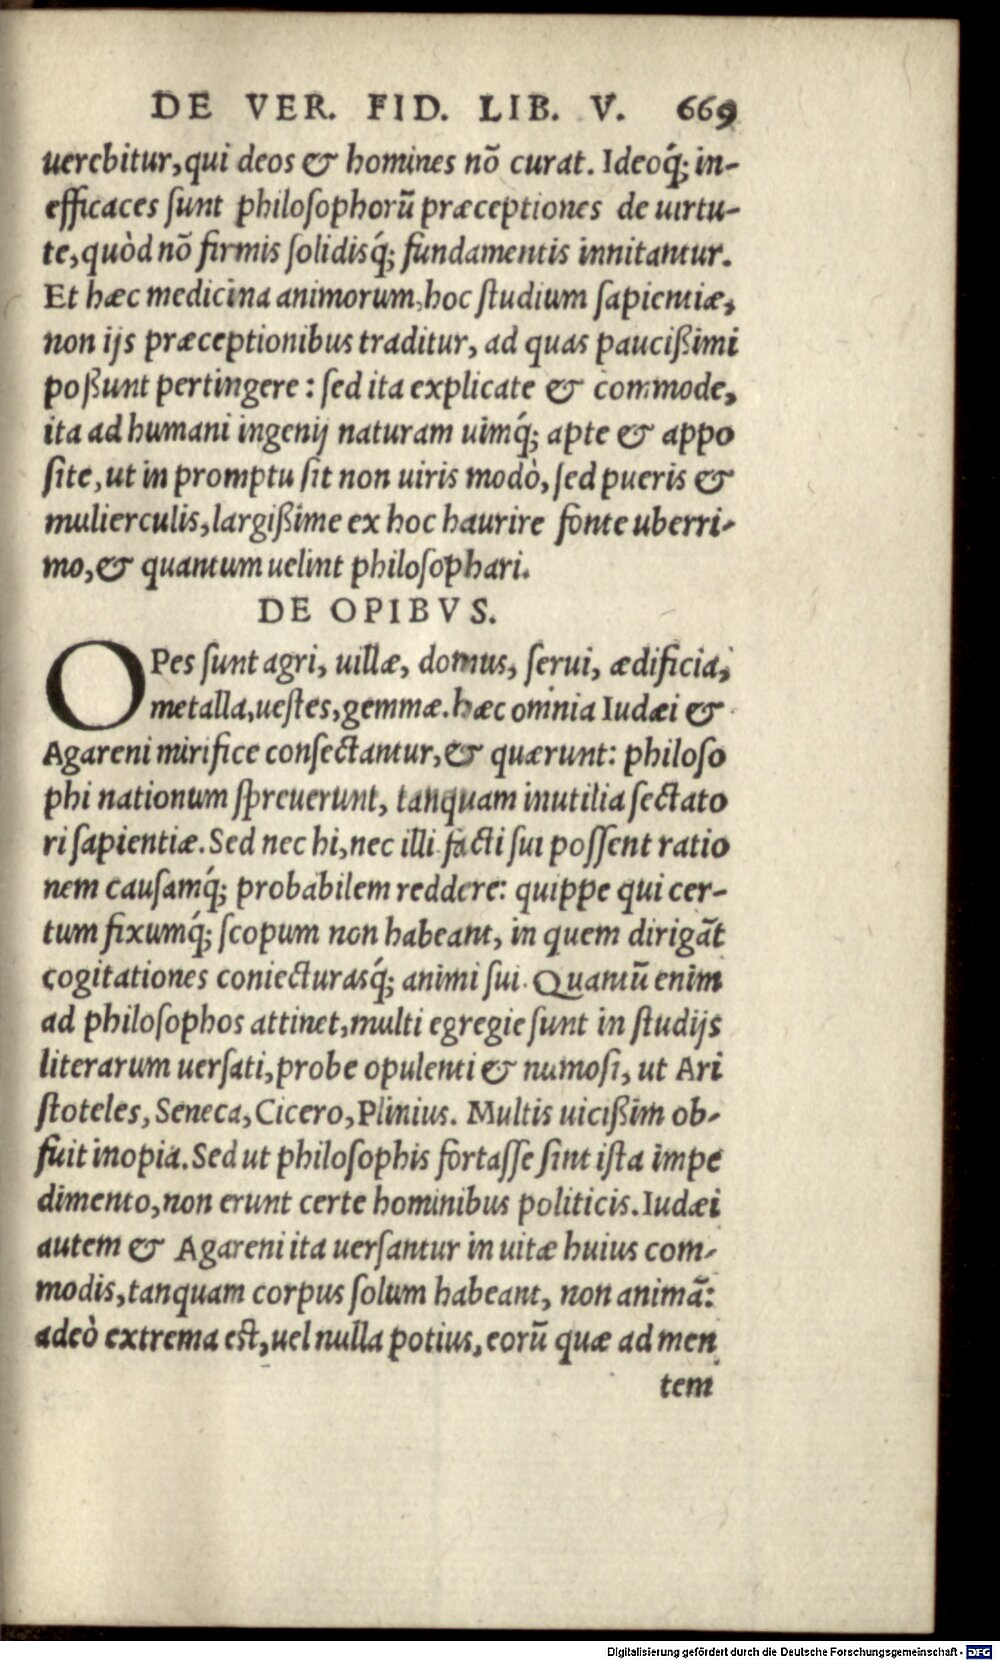 DE VER. FID. LIB. V. 669
uerebitur, qui deos & homines nõ curat. Ideoq́; in-
efficaces ſunt philoſophorũ præceptiones de uirtu-
te, quòd nõ firmis ſolidisq́; fundamentis innitantur.
Et hæc medicina animorum, hoc ſtudium ſapientiæ,
non ijs præceptionibus traditur, ad quas pauciſsimi
poſsunt pertingere: ſed ita explicate & commode,
ita ad humani ingenij naturam uimq́; apte & appo
ſite, ut in promptu ſit non uiris modò, ſed pueris &
mulierculis, largiſsime ex hoc haurire fonte uberri-
mo, & quantum uelint philoſophari.
DE OPIBVS.
OPes ſunt agri, uillæ, domus, ſerui, ædificia,
metalla, ueſtes, gemmæ. hæc omnia Iudæi &
Agareni mirifice conſectantur, & quærunt: philoſo
phi nationum ſpreuerunt, tanquam inutilia ſectato
ri ſapientiæ. Sed nec hi, nec illi facti ſui poſſent ratio
nem cauſamq́; probabilem reddere: quippe qui cer-
tum fixumq́; ſcopum non habeant, in quem dirigãt
cogitationes coniecturasq́; animi ſui. Quantũ enim
ad philoſophos attinet, multi egregie ſunt in ſtudijs
literarum uerſati, probe opulenti & numoſi, ut Ari
ſtoteles, Seneca, Cicero, Plinius. Multis uiciſsim ob-
fuit inopia. Sed ut philoſophis fortaſſe ſint iſta impe
dimento, non erunt certe hominibus politicis. Iudæi
autem & Agareni ita uerſantur in uitæ huius com-
modis, tanquam corpus ſolum habeant, non animã:
adeò extrema eſt, uel nulla potius, eorũ quæ ad men
tem
Digitalisierung gefördert durch die Deutsche Forschungsgemeinschaft - DFG